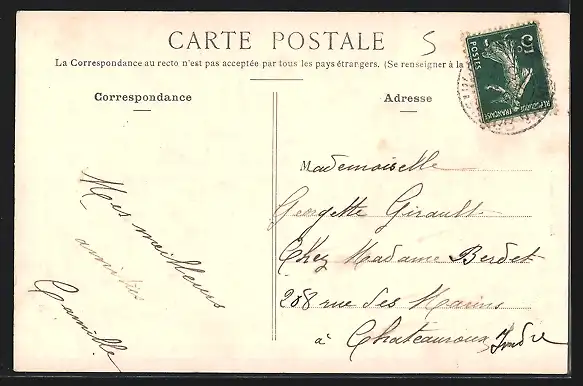 CARTE POSTALE
5
La Correspondance au recto n'est pas acceptée par tous les pays étrangers. (Se renseigner à la
Correspondance
Adresse
5
POSTES
REPUBLIQUE FRANÇAISE
Mes meilleurs
amitiés
Camille
Mademoiselle
Georgette Girault
Chez Madame Berdet
208 rue des Marins
à Chateauroux Indre